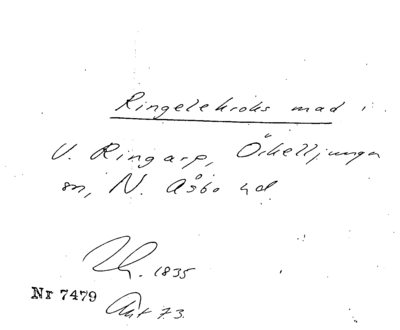 Ringelekroks mad i
V. Ringarp, Örkelljunga
sn, N. Åsbo hd
Th. 1835
Nr 7479
Akt 73.